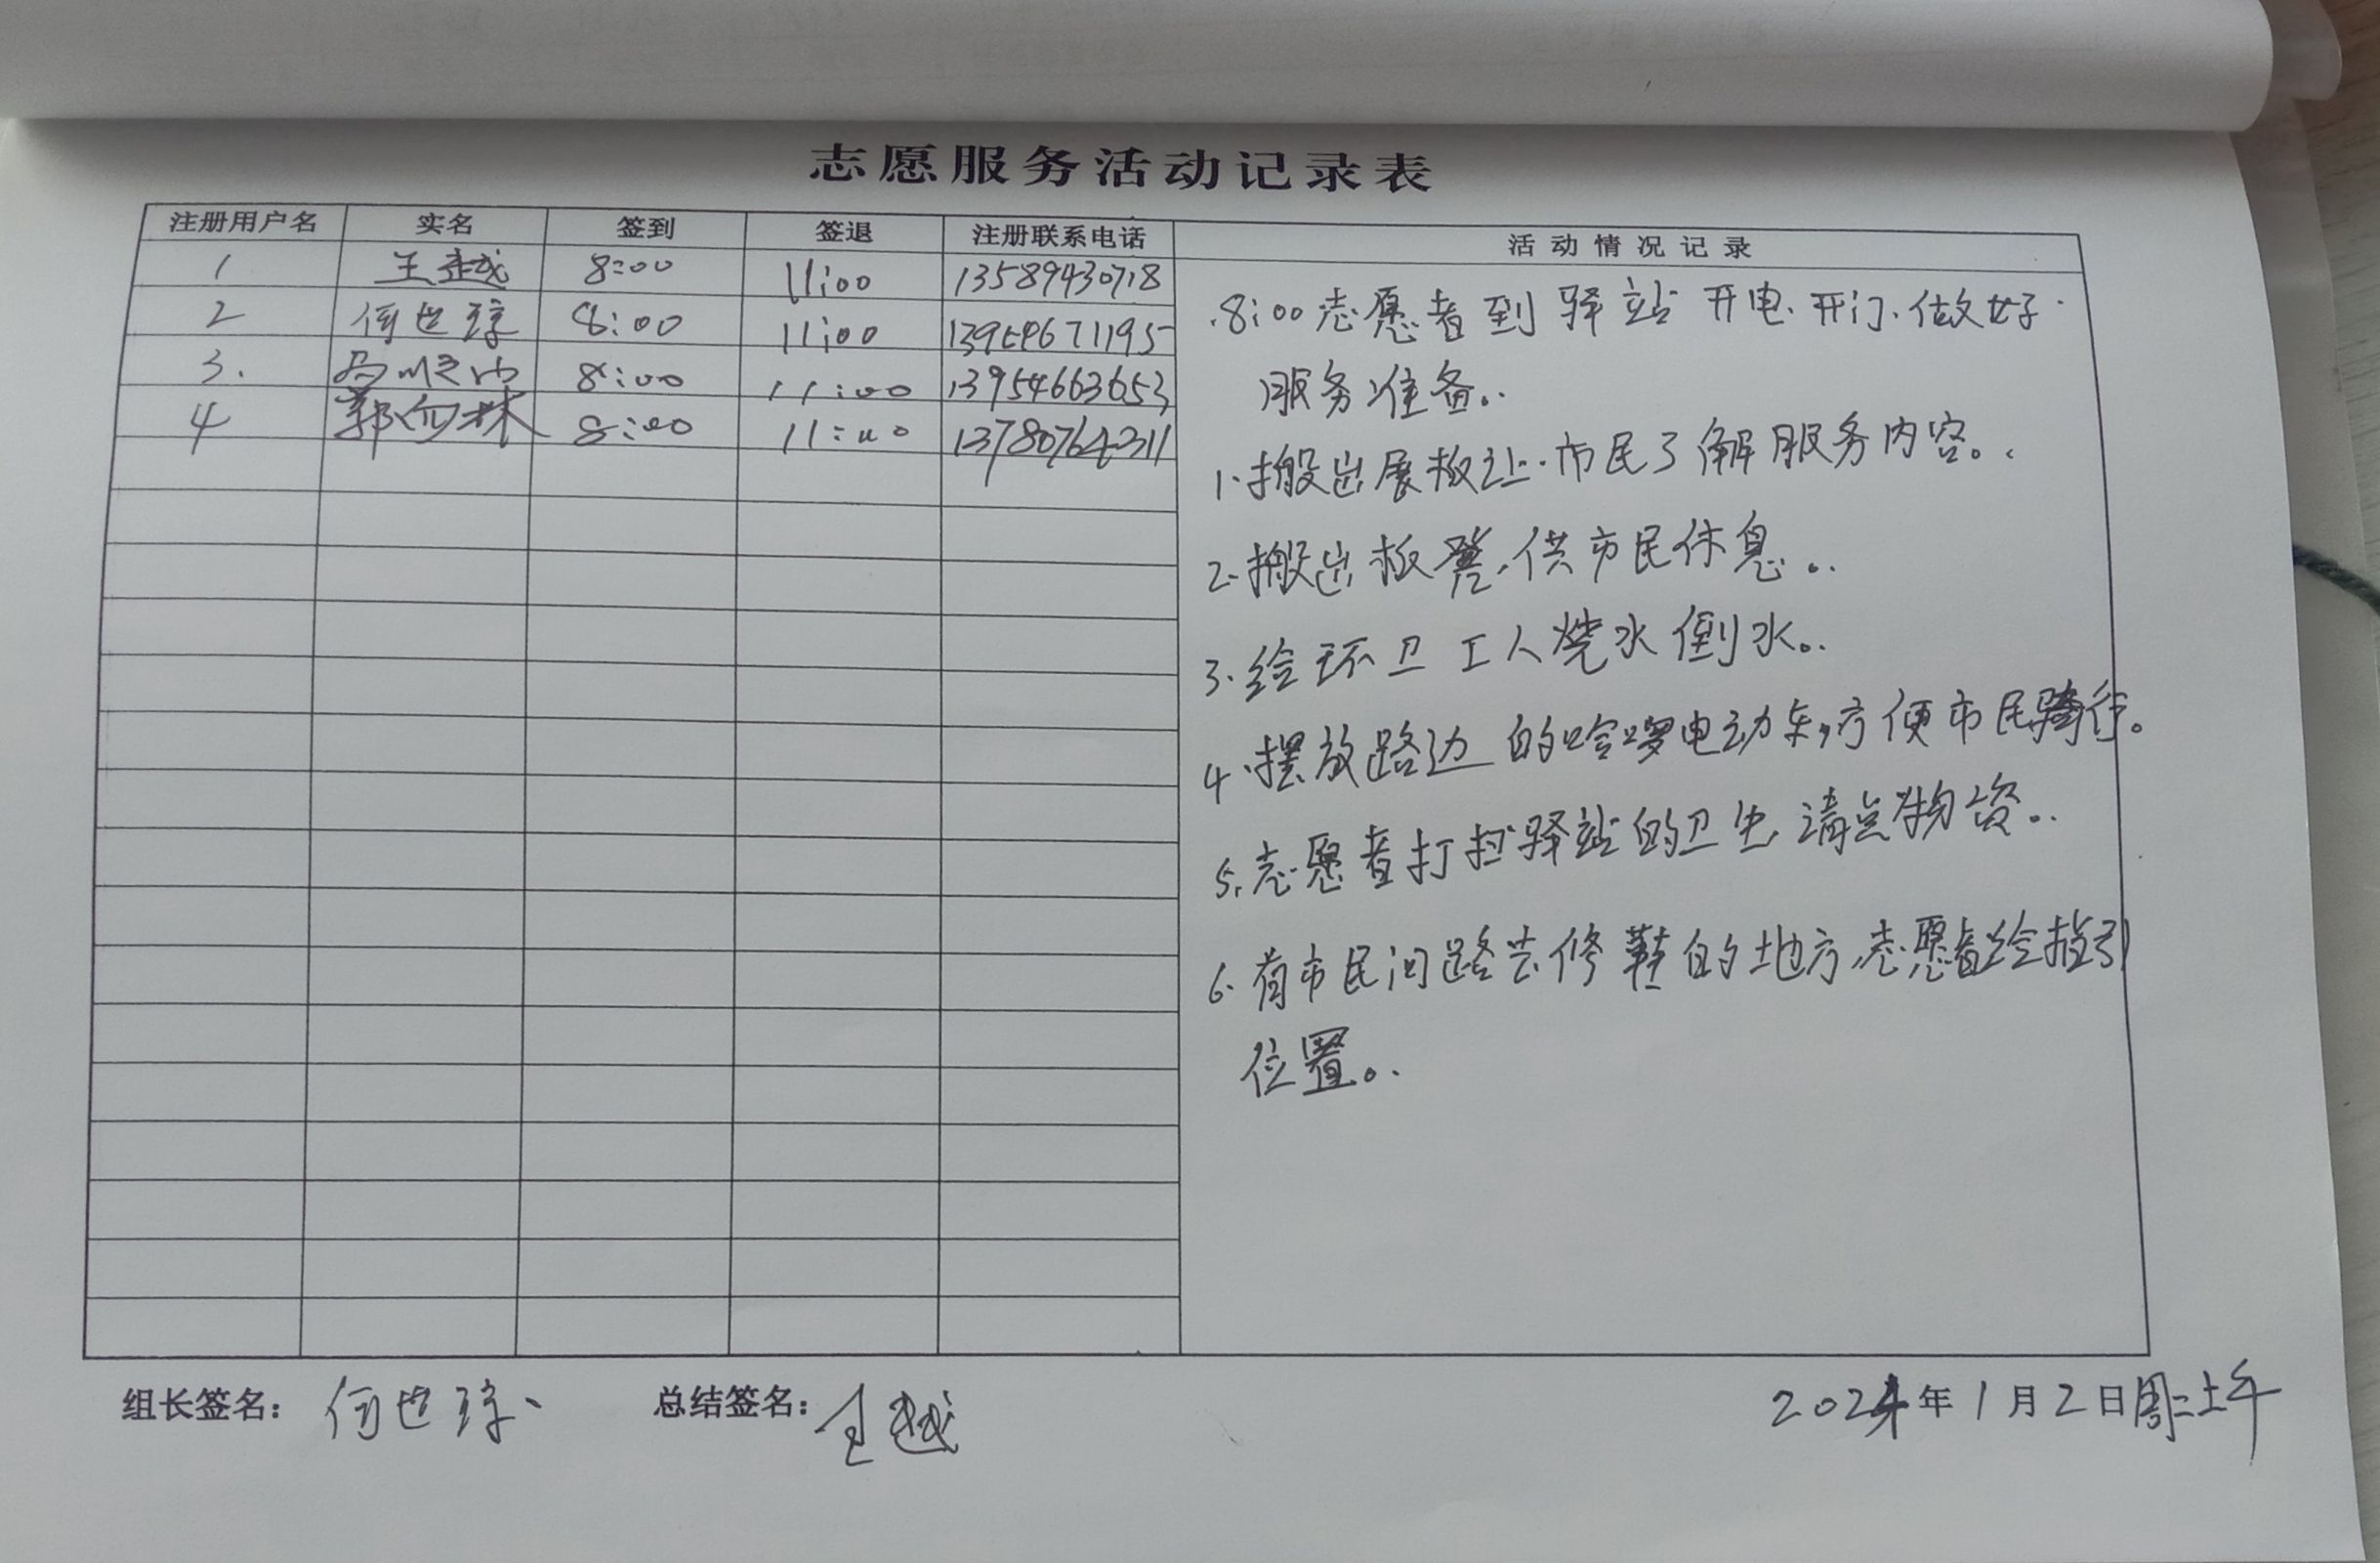 志愿服务活动记录表
注册用户名 实名 签到 签退 注册联系电话 活动情况记录
1 王越 8:00 11:00 13589430718
2 何世琼 8:00 11:00 13954671195
3. 8:00 11:00 13954663653
4 郭 林 8:00 11:00 13780764311
8:00志愿者到驿站开电.开门.做好
服务准备..
1.搬出展板让.市民了解服务内容。.
2.搬出板凳,供市民休息。.
3.给环卫工人烧水倒水。.
4.摆放路边的哈啰电动车,方便市民骑行。
5.志愿者打扫驿站的卫生,清点物资。.
6.有市民问路去修鞋的地方,志愿者给指引
位置。.
组长签名: 何世琼、 总结签名: 王越
2024年1月2日周二上午